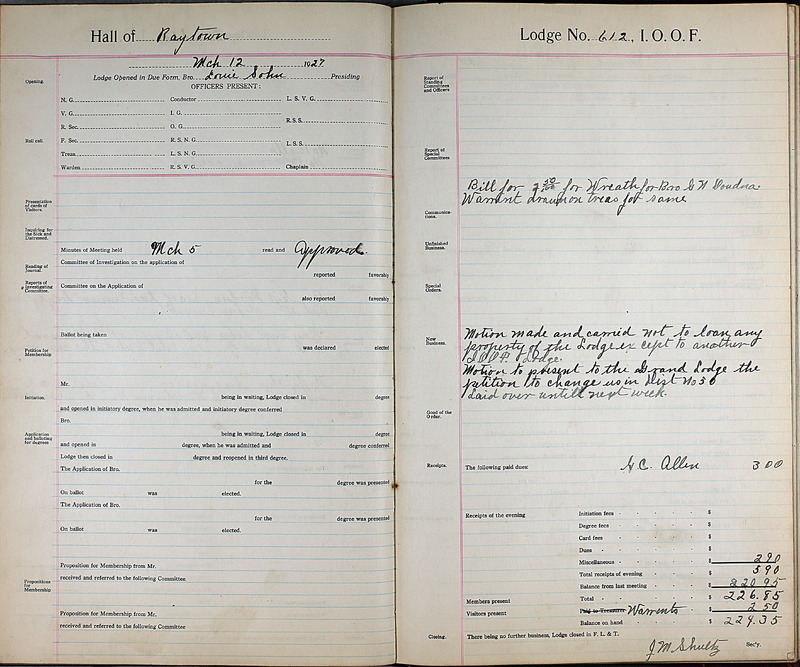 Hall of Raytown
Mch 12 1927
Opening.
Lodge Opened in Due Form, Bro. Louie Sohn Presiding
OFFICERS PRESENT:
Roll call.
N. G. Conductor L. S. V. G.
V. G. I. G.
R. S. S.
R. Sec. O. G.
F. Sec. R. S. N. G.
L. S. S.
Treas. L. S. N. G.
Warden R. S. V. G. Chaplain
Presentation of cards of Visitors.
Inquiring for the Sick and Distressed.
Reading of Journal.
Minutes of Meeting held Mch 5 read and Approved.
Reports of Investigating Committee.
Committee of Investigation on the application of
reported favorably
Committee on the Application of
also reported favorably
Ballot being taken
Petition for Membership
was declared elected
Mr.
Initiation.
being in waiting, Lodge closed in degree
and opened in initiatory degree, when he was admitted and initiatory degree conferred
Bro.
Application and balloting for degrees
being in waiting, Lodge closed in degree
and opened in degree, when he was admitted and degree conferred
Lodge then closed in degree and reopened in third degree.
The Application of Bro.
for the degree was presented
On ballot was elected.
The Application of Bro.
for the degree was presented
On ballot was elected.
Propositions for Membership
Proposition for Membership from Mr.
received and referred to the following Committee
Proposition for Membership from Mr.
received and referred to the following Committee
Lodge No. 612, I. O. O. F.
Report of Standing Committees and Officers
Report of Special Committees
Bill for 2 50/100 for Wreath for Bro G W
Warrent drawn on treas for same
Communications.
Unfinished Business.
Special Orders.
New Business.
Motion made and carried not to loan any
property of the Lodge except to another
I.O.O.F. Lodge.
Motion to present to the Grand Lodge the
petition to change us in Dist No 50
Laid over untill next week.
Good of the Order.
Receipts.
The following paid dues: H C. Allen 3 00
Receipts of the evening
Initiation fees $
Degree fees $
Card fees $
Dues $
Miscellaneous $ 2 90
Total receipts of evening $ 5 90
Balance from last meeting $ 220 95
Members present
Total $ 226.85
Visitors present
Paid to Treasurer Warrents $ 2 50
Balance on hand $ 224.35
Closing.
There being no further business, Lodge closed in F. L. & T.
J M Shultz Sec'y.